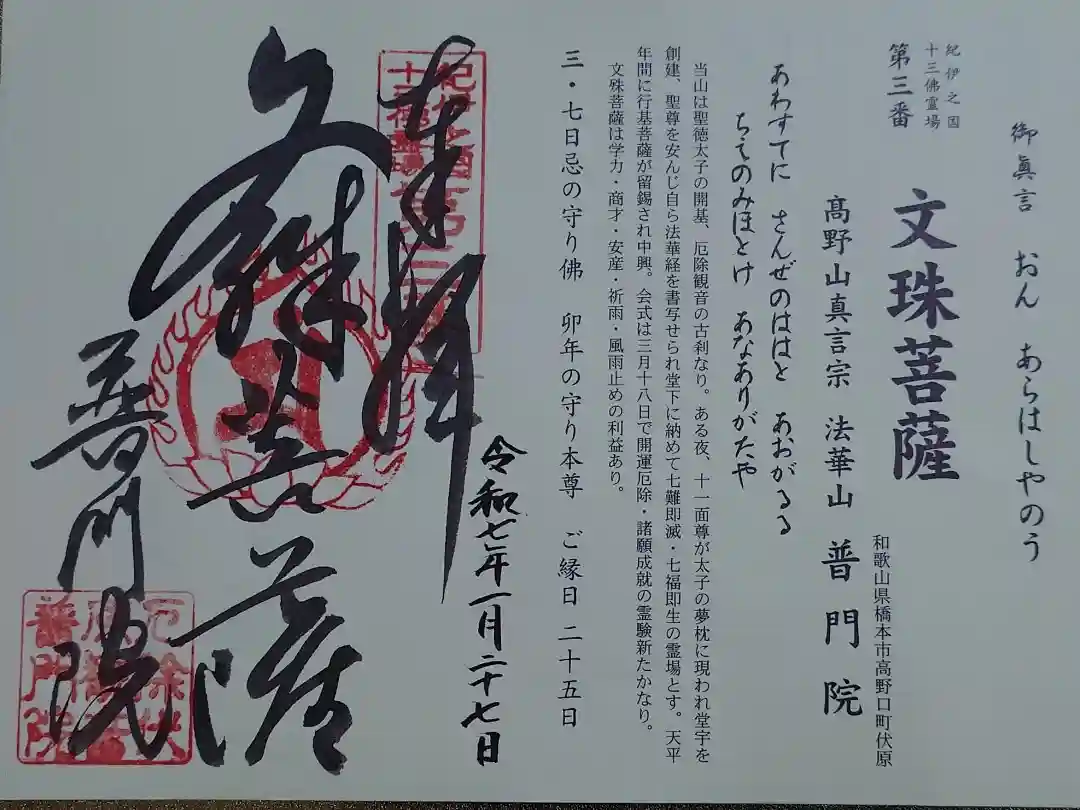 御眞言 おん あらはしやのう
紀伊之国
十三佛霊場
第三番
文珠菩薩
和歌山県橋本市高野口町伏原
髙野山真言宗 法華山 普門院
あわすてに さんぜのははと あおがるる
ちえのみほとけ あなありがたや
当山は聖徳太子の開基、厄除観音の古刹なり。ある夜、十一面尊が太子の夢枕に現われ堂宇を
創建、聖尊を安んじ自ら法華経を書写せられ堂下に納めて七難即滅・七福即生の霊場とす。天平
年間に行基菩薩が留錫され中興。会式は三月十八日で開運厄除・諸願成就の霊験新たかなり。
文殊菩薩は学力・商才・安産・祈雨・風雨止めの利益あり。
三・七日忌の守り佛 卯年の守り本尊 ご縁日 二十五日
令和七年一月二十七日
奉拜
文殊菩薩
普門院